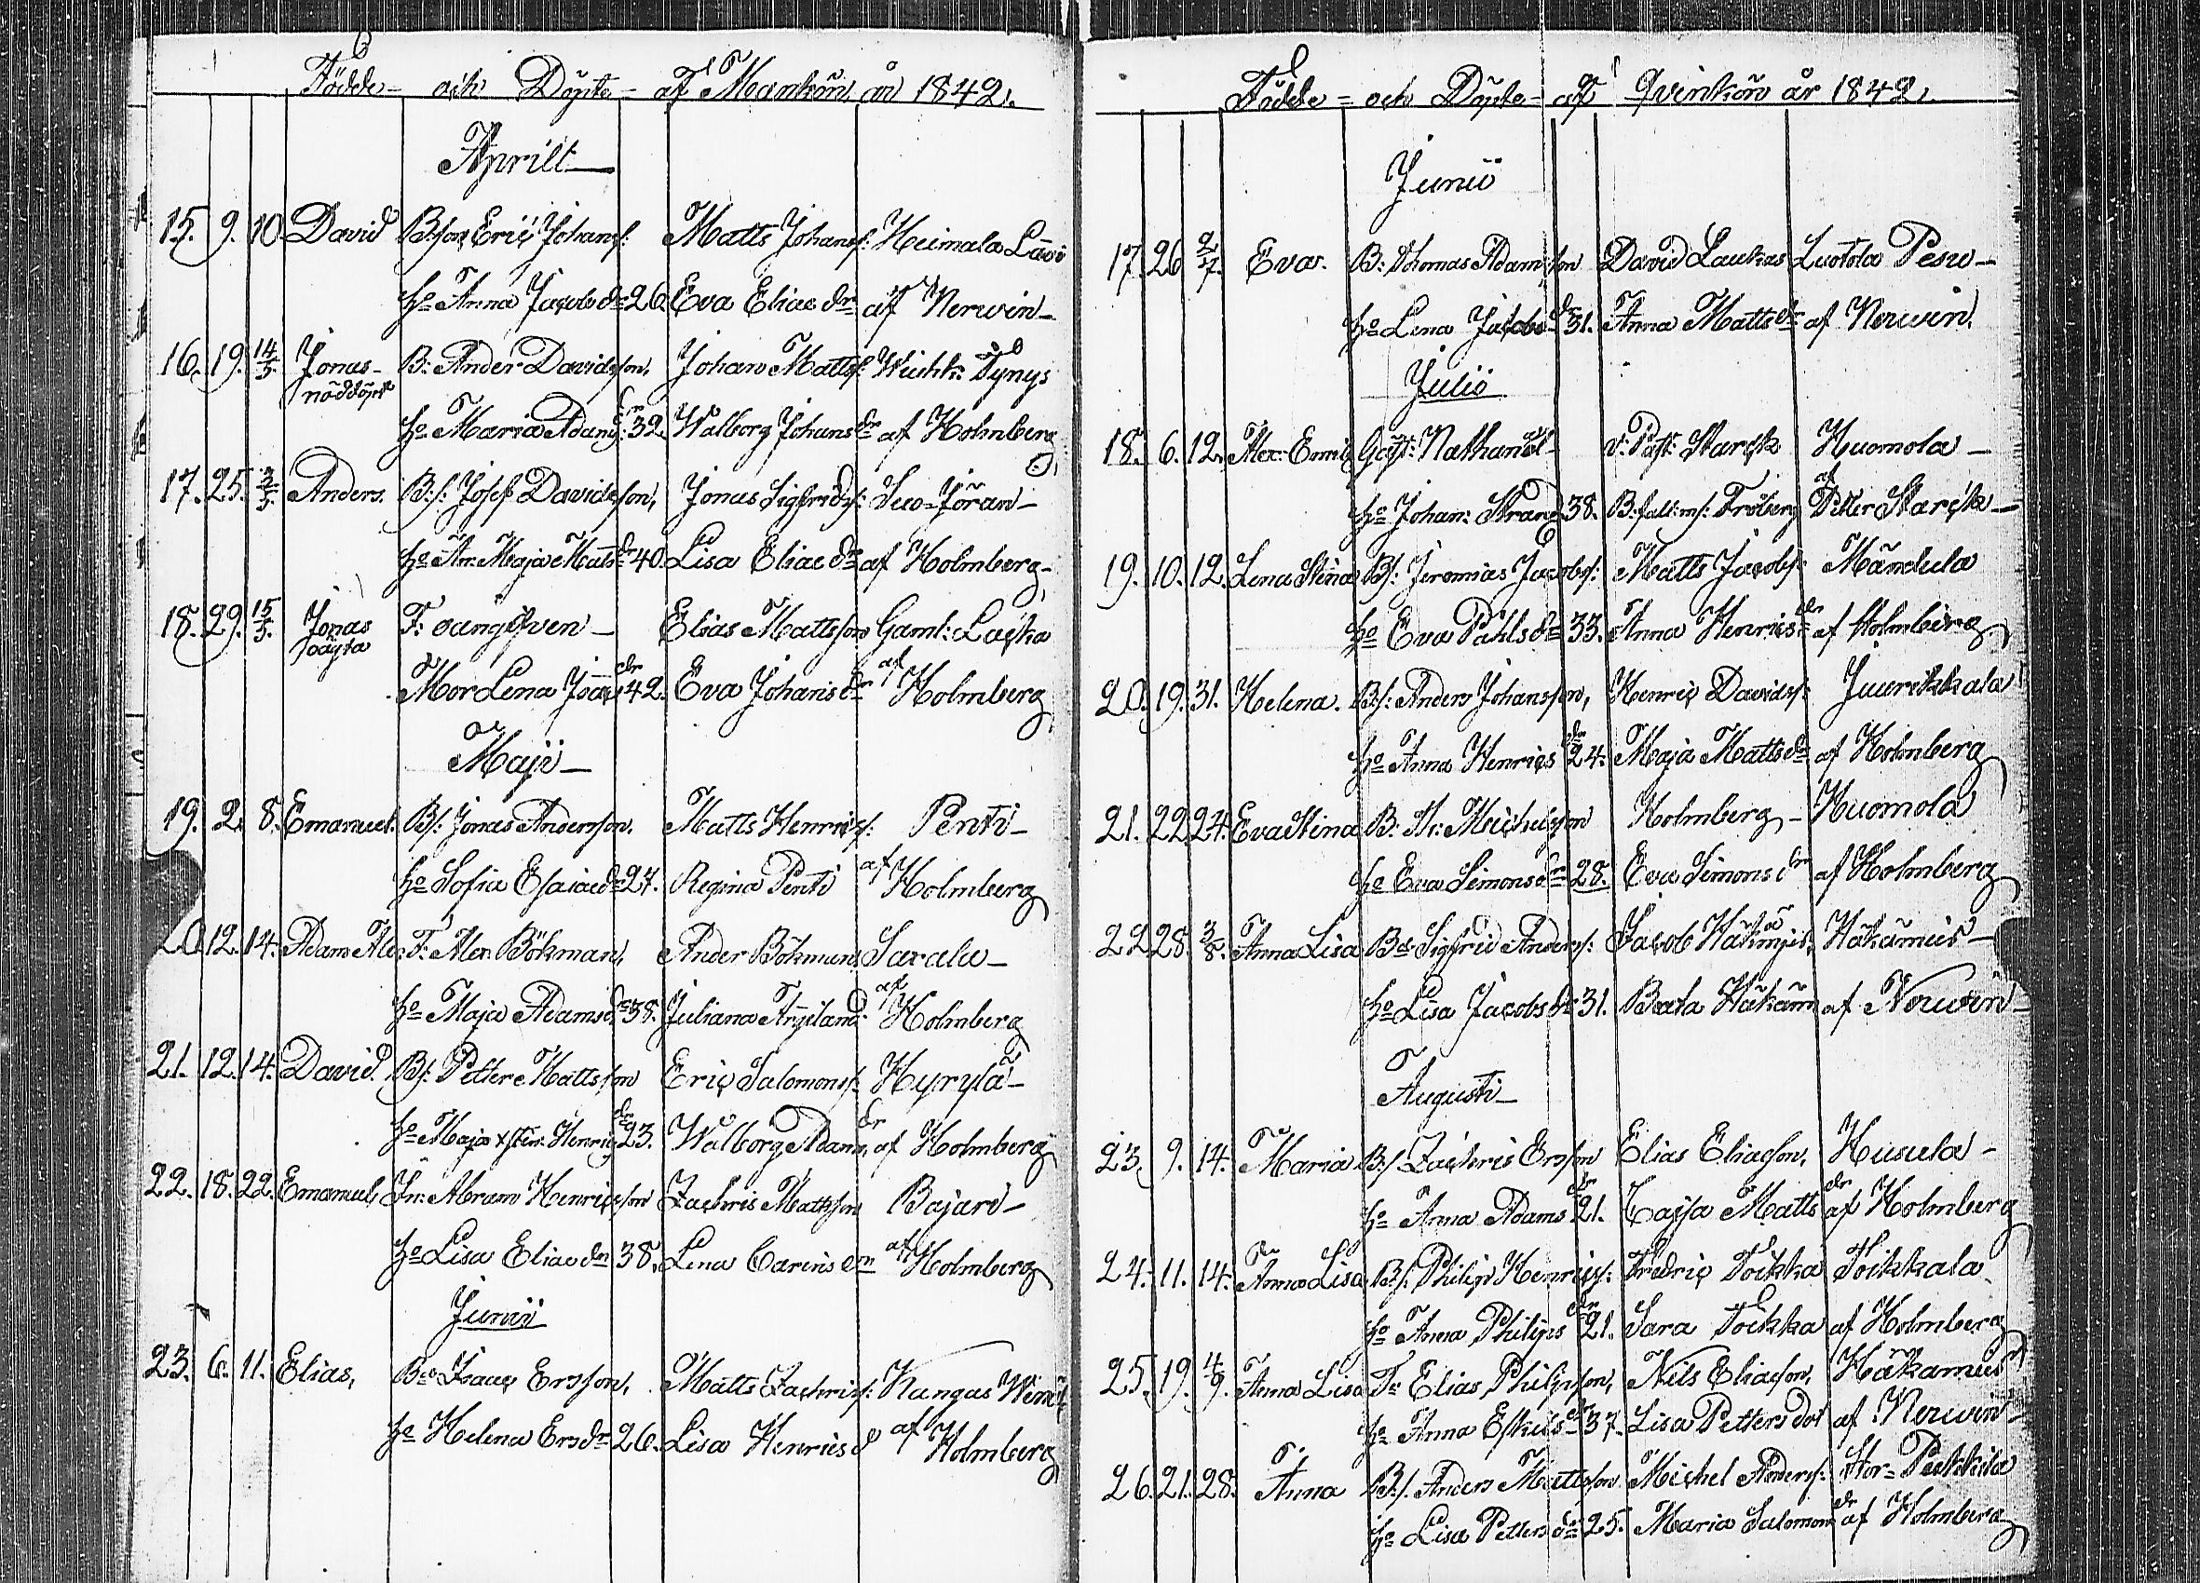 Födde- och Döpte- af Mankön år 1842.
Aprill
15. 9. 10. David B:son Eric Johansf: Matts Johansf: Heimala Lasi
Ho Anna Jacobsdr 26. Eva Eliaedr af Nerwin
16. 19. 14/5. Jonas B: Ander Davidsson, Johan Mattsf: Tynys
nöddöpt
Ho Maria 32. Walborg Johansdr af Holmberg
17. 25. 3/5. Anders. B:f: Josef Davidsson, Jonas Sigfredsf: Jöran
Ho An: Maja Mattsdr 40. Lisa Eliaedr af Holmberg
18. 29. 15/5. Jonas F: Elias Mattsson Gaml: Lacka
oägta
Mor Lena 42. Eva Johansdr af Holmberg
Maji
19. 2. 8. Emanuel. B:f: Jonas Andersson. Matts Henricsf: Penti
Ho Sofia Esaiaedr 27. Regina Penti af Holmberg
20. 12. 14. Adam Alex: F: Alex. Bökman, Ander Bökman, Saxala
Ho Maja Adamsdr 38. Juliana af Holmberg
21. 12. 14. David. B:f: Petter Mattsson Eric Salomonsf: Hyrylä
Ho Maja Henricsdr 23. Walborg Adamsdr af Holmberg
22. 18. 22. Emanuel, In: Abram Henricsson Zachris Mattsson Bajari
Ho Lisa Eliaedr 38. Lena Carinsdr af Holmberg
Junii
23. 6. 11. Elias, B: Isaac Ersson, Matts Zachrisf: Kangas
Ho Helena Ersdr 26. Lisa Henricsd af Holmberg
Födde- och Döpte- af Qvinkön år 1842.
Junii
17. 26. 2/7. Eva. B: Thomas Adamsson David Laukas Luotola Pesu
Ho Lena Jacobsdr 31. Anna Mattsdr af Nerwin.
Julii
18. 6. 12. Alex: Emil: Gäst: Nathanael v: Past: Starck Huomola
Ho Johan: Strand 38. B:falt:ms: Fröberg af Petter Starck
19. 10. 12. Lena Stina B:f: Jeremias Jacobsf: Matts Jacobsf: Mändula
Ho Eva Pahlsdr 33. Anna Henricsdr af Holmberg
20. 19. 31. Helena. B:f: Anders Johansson, Henric Davidsf: Juurikkala
Ho Anna Henricsdr 24. Maja Mattsdr af Holmberg
21. 22. 24. Eva Stina B: Michelsson Holmberg Huomola
Ho Eva Simonsdr 28. Eva Simonsdr af Holmberg
22. 28. 3/8. Anna Lisa B: Sigfrid Andersf: Jacob Häkämies, Häkämies
Ho Lisa Jacobsdr 31. Beata Häkäm af Nerwin
Augusti
23. 9. 14. Maria B:f: Zachris Ersson Elias Eliasson, Husula
Ho Anna Adamsdr 21. Cajsa Mattsdr af Holmberg
24. 11. 14. Anna Lisa B:f: Philip Henricsf: Fredric Toikka Toikkala
Ho Anna Philipsdr 21. Sara Toikka af Holmberg
25. 19. 4/9. Anna Lisa T: Elias Philipsson, Nils Eliasson, Häkämies
Ho Anna Eskilsdr 37. Lisa Pettersdot af Nerwin
26. 21. 28. Anna B:f: Anders Mattsson Michel Andersf: Stor-Pakkila
Ho Lisa Pettersdr 25. Maria Salomonsdr af Holmberg